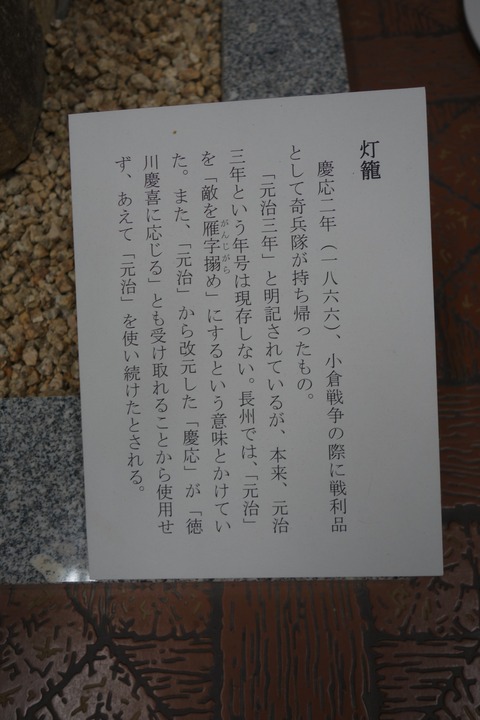 灯籠
慶応二年（一八六六）、小倉戦争の際に戦利品
として奇兵隊が持ち帰ったもの。
「元治三年」と明記されているが、本来、元治
三年という年号は現存しない。長州では、「元治」
を「敵を雁字搦め」にするという意味とかけてい
がんじがら
た。また、「元治」から改元した「慶応」が「徳
川慶喜に応じる」とも受け取れることから使用せ
ず、あえて「元治」を使い続けたとされる。